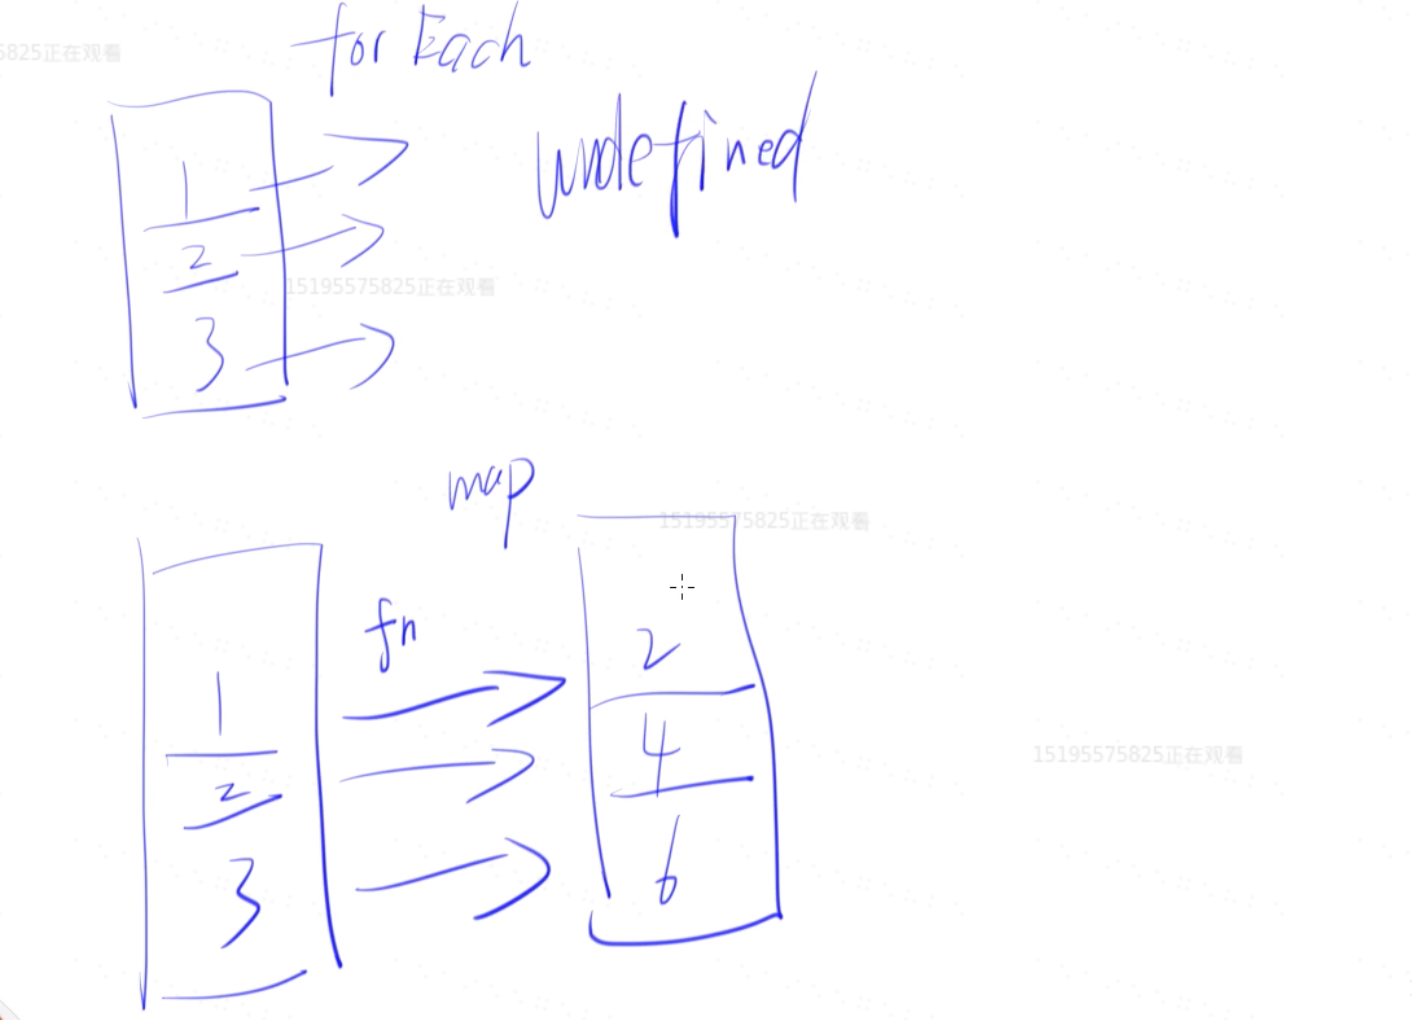 5825正在观看
forEach
undefined
1
2
15195575825正在观看
3
map
15195575825正在观看
fn
2
1
4
15195575825正在观看
2
6
3